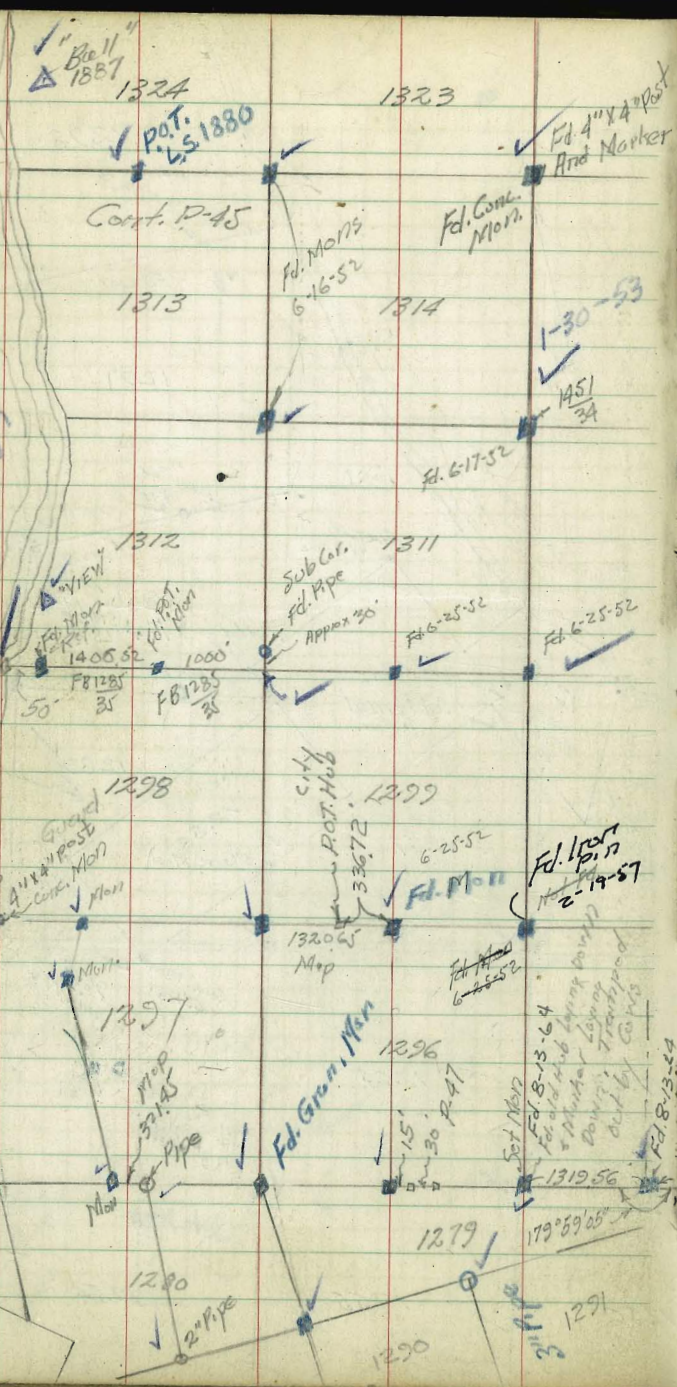 "Bell"
1887
1324
1323
P.O.T.
L.S. 1880
Fd. 4"x4" Post
And Marker
Cont. P-45
Fd. Conc.
Mon.
Fd. Mons
6-16-52
1313
1314
1-30-53
1451
34
Fd. 6-17-52
1312
1311
"VIEW"
Fd. Mon
Ref.
Fd. P.O.T.
Mon
Sub Cor.
Fd. Pipe
Approx 30'
Fd. 6-25-52
Fd. 6-25-52
1406.52
1000'
FB 1285
35
FB 1285
35
50'
1298
1299
City
P.O.T. Hub
336.72'
6-25-52
Fd. Mon
Fd. Iron
Pin
2-19-57
4"x4" Post
Conc. Mon
Mon
1320.65
Map
Fd. Mon
6-25-52
Mon.
1297
Map
371.95
Pipe
Fd. Gran. Mon
1296
15'
30'
P-47
Set Mon
Fd. 8-13-64
Fd. old Hub Laying Down
& Marker Laying
Down. Tramped
out by Cows
Fd. 8-13-64
Mon
1319.56
1279
179°59'05"
1280
2" Pipe
3" Pipe
1291
1290